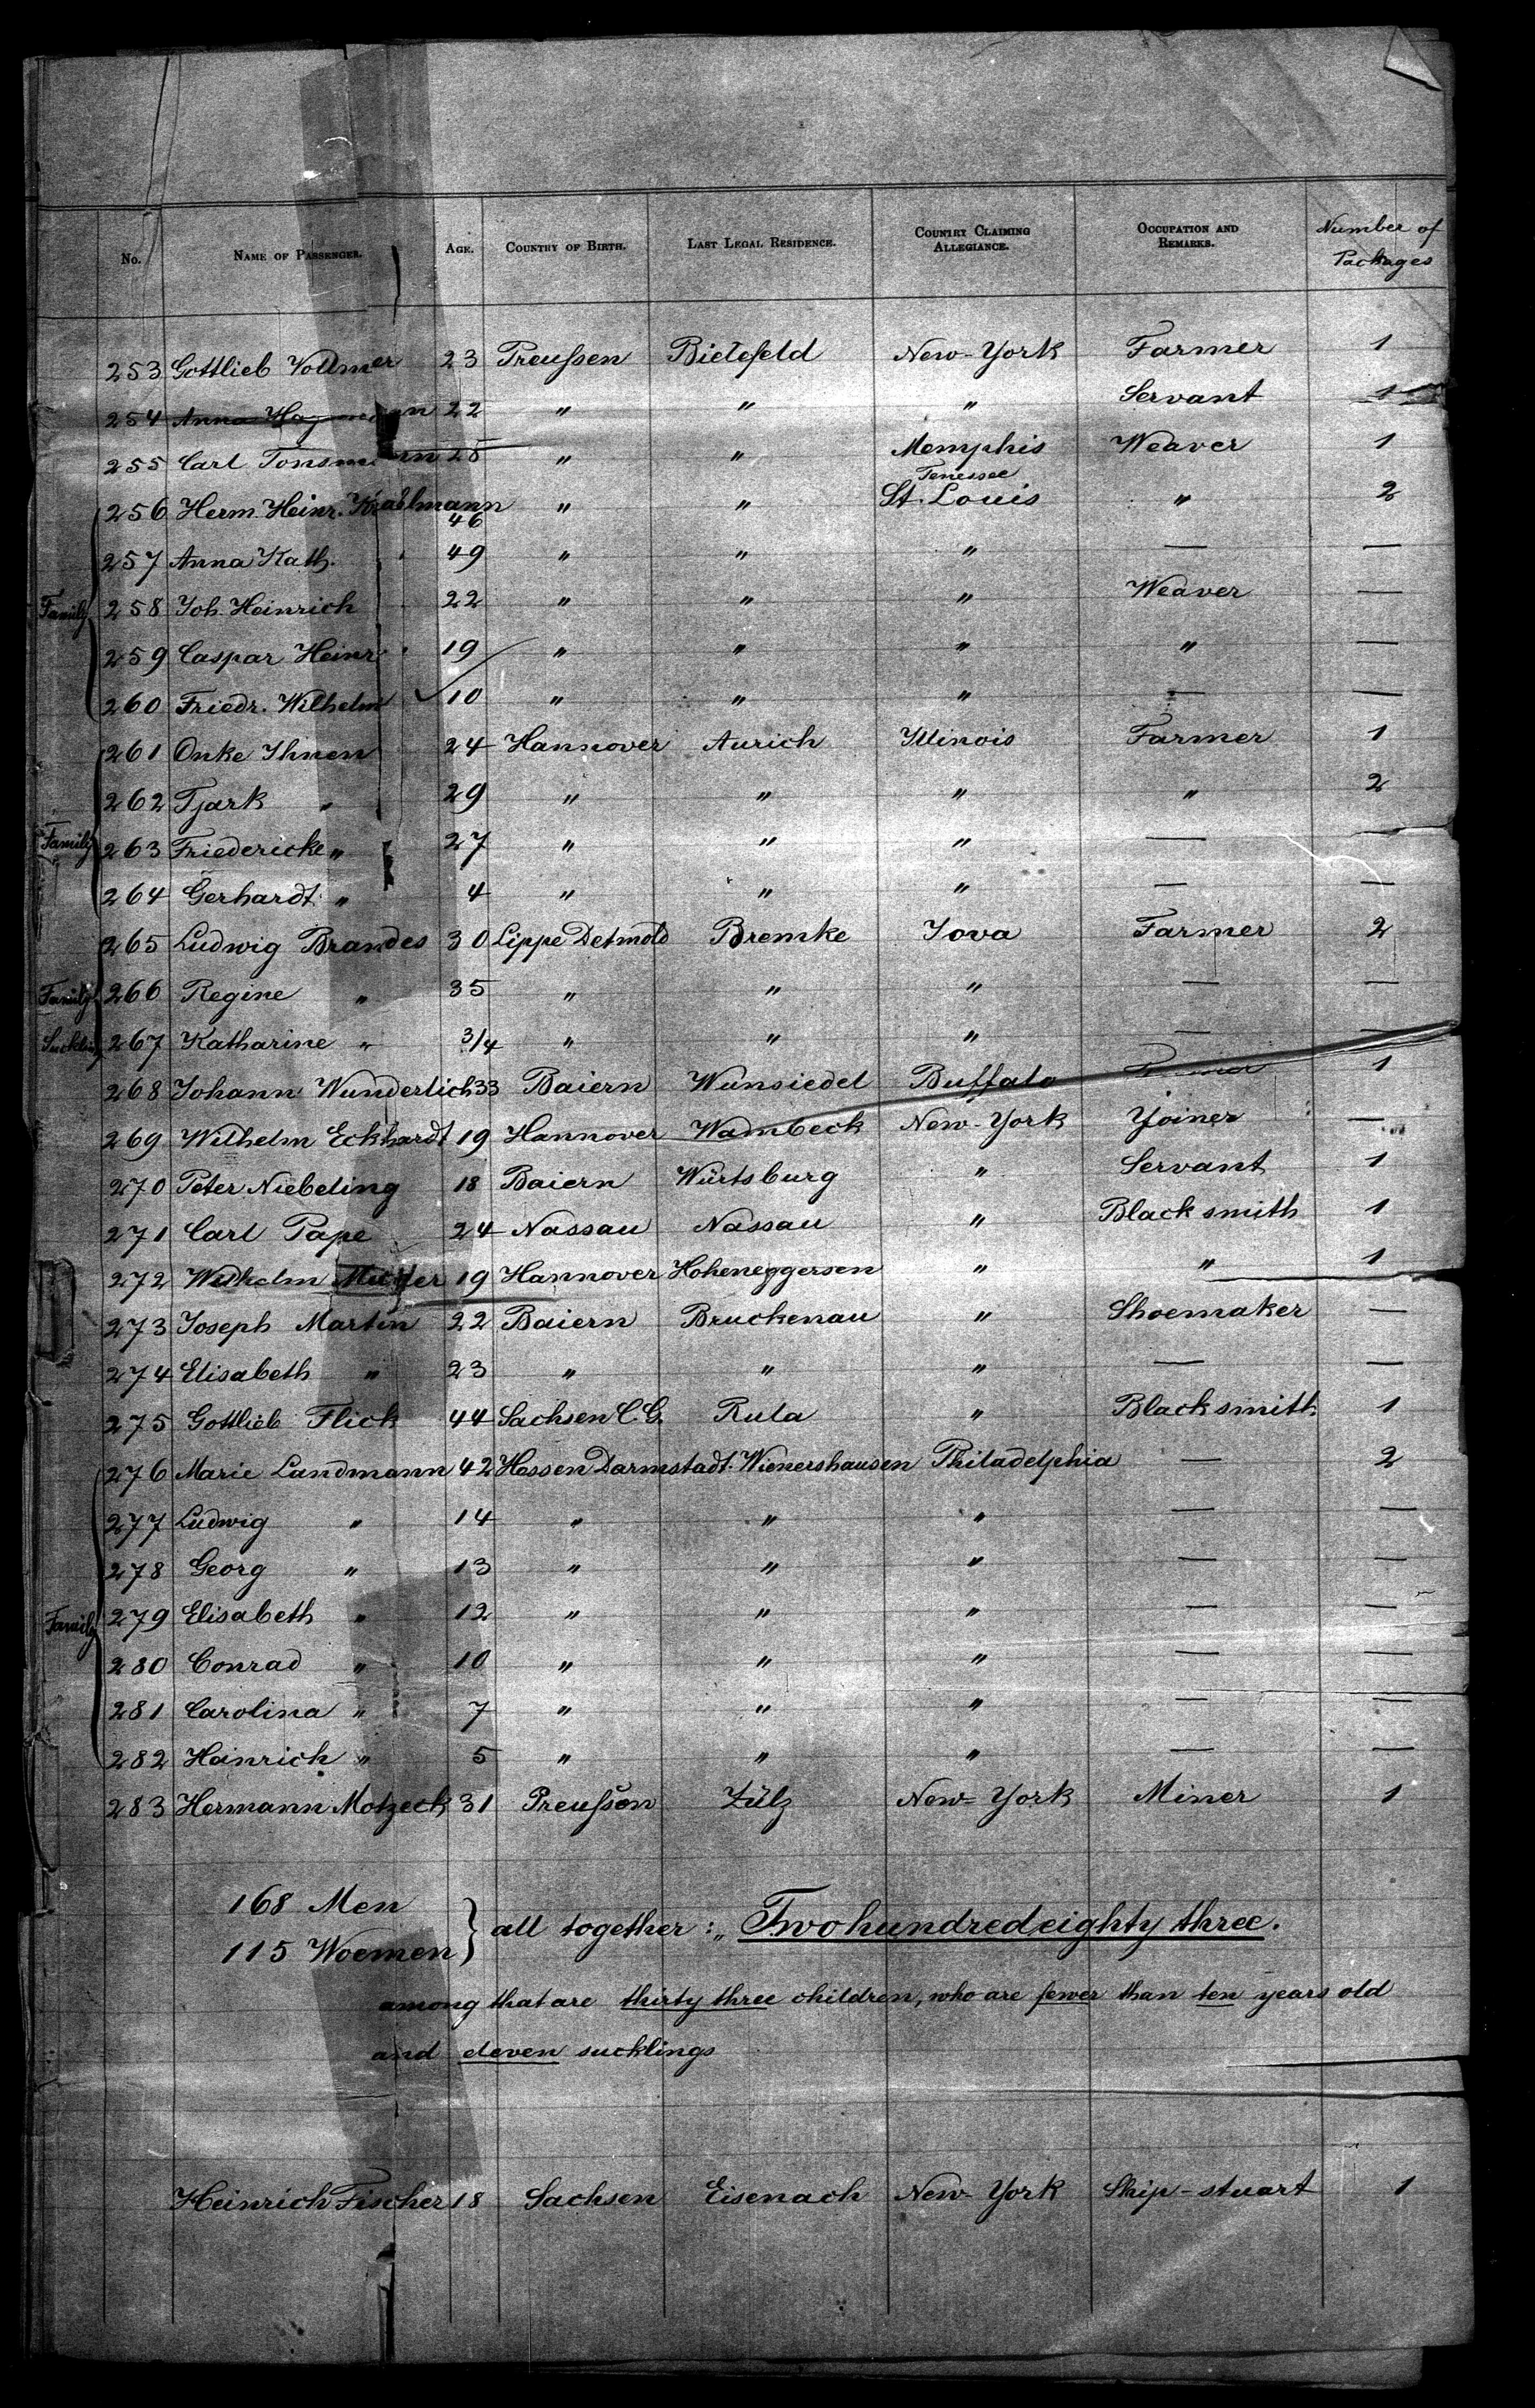 No. NAME OF PASSENGER. AGE. COUNTRY OF BIRTH. LAST LEGAL RESIDENCE. COUNTRY CLAIMING ALLEGIANCE. OCCUPATION AND REMARKS. Number of Packages
253 Gottlieb Vollmer 23 Preußen Bielefeld New-York Farmer 1
254 Anna 22 " " " Servant 1
255 Carl 25 " " Memphis Tenessee Weaver 1
256 Herm. Heinr. 46 " " St. Louis " 2
257 Anna Kath. 49 " " " — —
Family 258 Joh. Heinrich 22 " " " Weaver —
259 Caspar Heinr 19 " " " " —
260 Friedr. Wilhelm 10 " " " — —
261 Onke Ihnen 24 Hannover Aurich Illinois Farmer 1
262 Tjark " 29 " " " " 2
Family 263 Friedericke " 27 " " " —
264 Gerhardt " 4 " " " — —
265 Ludwig Brandes 30 Lippe Detmold Bremke Iova Farmer 2
Family 266 Regine " 35 " " " — —
Suckling 267 Katharine " 3/4 " " " — —
268 Johann Wunderlich 33 Baiern Wunsiedel Buffalo 1
269 Wilhelm Eckhardt 19 Hannover Wambeck New-York Yoiner —
270 Peter Niebeling 18 Baiern Würtsburg " Servant 1
271 Carl Pape 24 Nassau Nassau " Black smith 1
272 Wilhelm 19 Hannover Hoheneggersen " " 1
273 Joseph Martin 22 Baiern Bruckenau " Shoemaker —
274 Elisabeth " 23 " " " — —
275 Gottlieb Flick 44 Sachsen C.G. Rula " Black smith 1
276 Marie Landmann 42 Hessen Darmstadt. Wienershausen Philadelphia — 2
277 Ludwig " 14 " " " — —
278 Georg " 13 " " " — —
Family 279 Elisabeth " 12 " " " — —
280 Conrad " 10 " " " — —
281 Carolina " 7 " " " — —
282 Heinrich " 5 " " " — —
283 Hermann Motzeck 31 Preußen Zülz New-York Miner 1
168 Men
115 Woemen } all together: „ Twohundredeighty three.
among that are thirty three children, who are fewer than ten years old
and eleven sucklings
Heinrich Fischer 18 Sachsen Eisenach New-York Ship-stuart 1